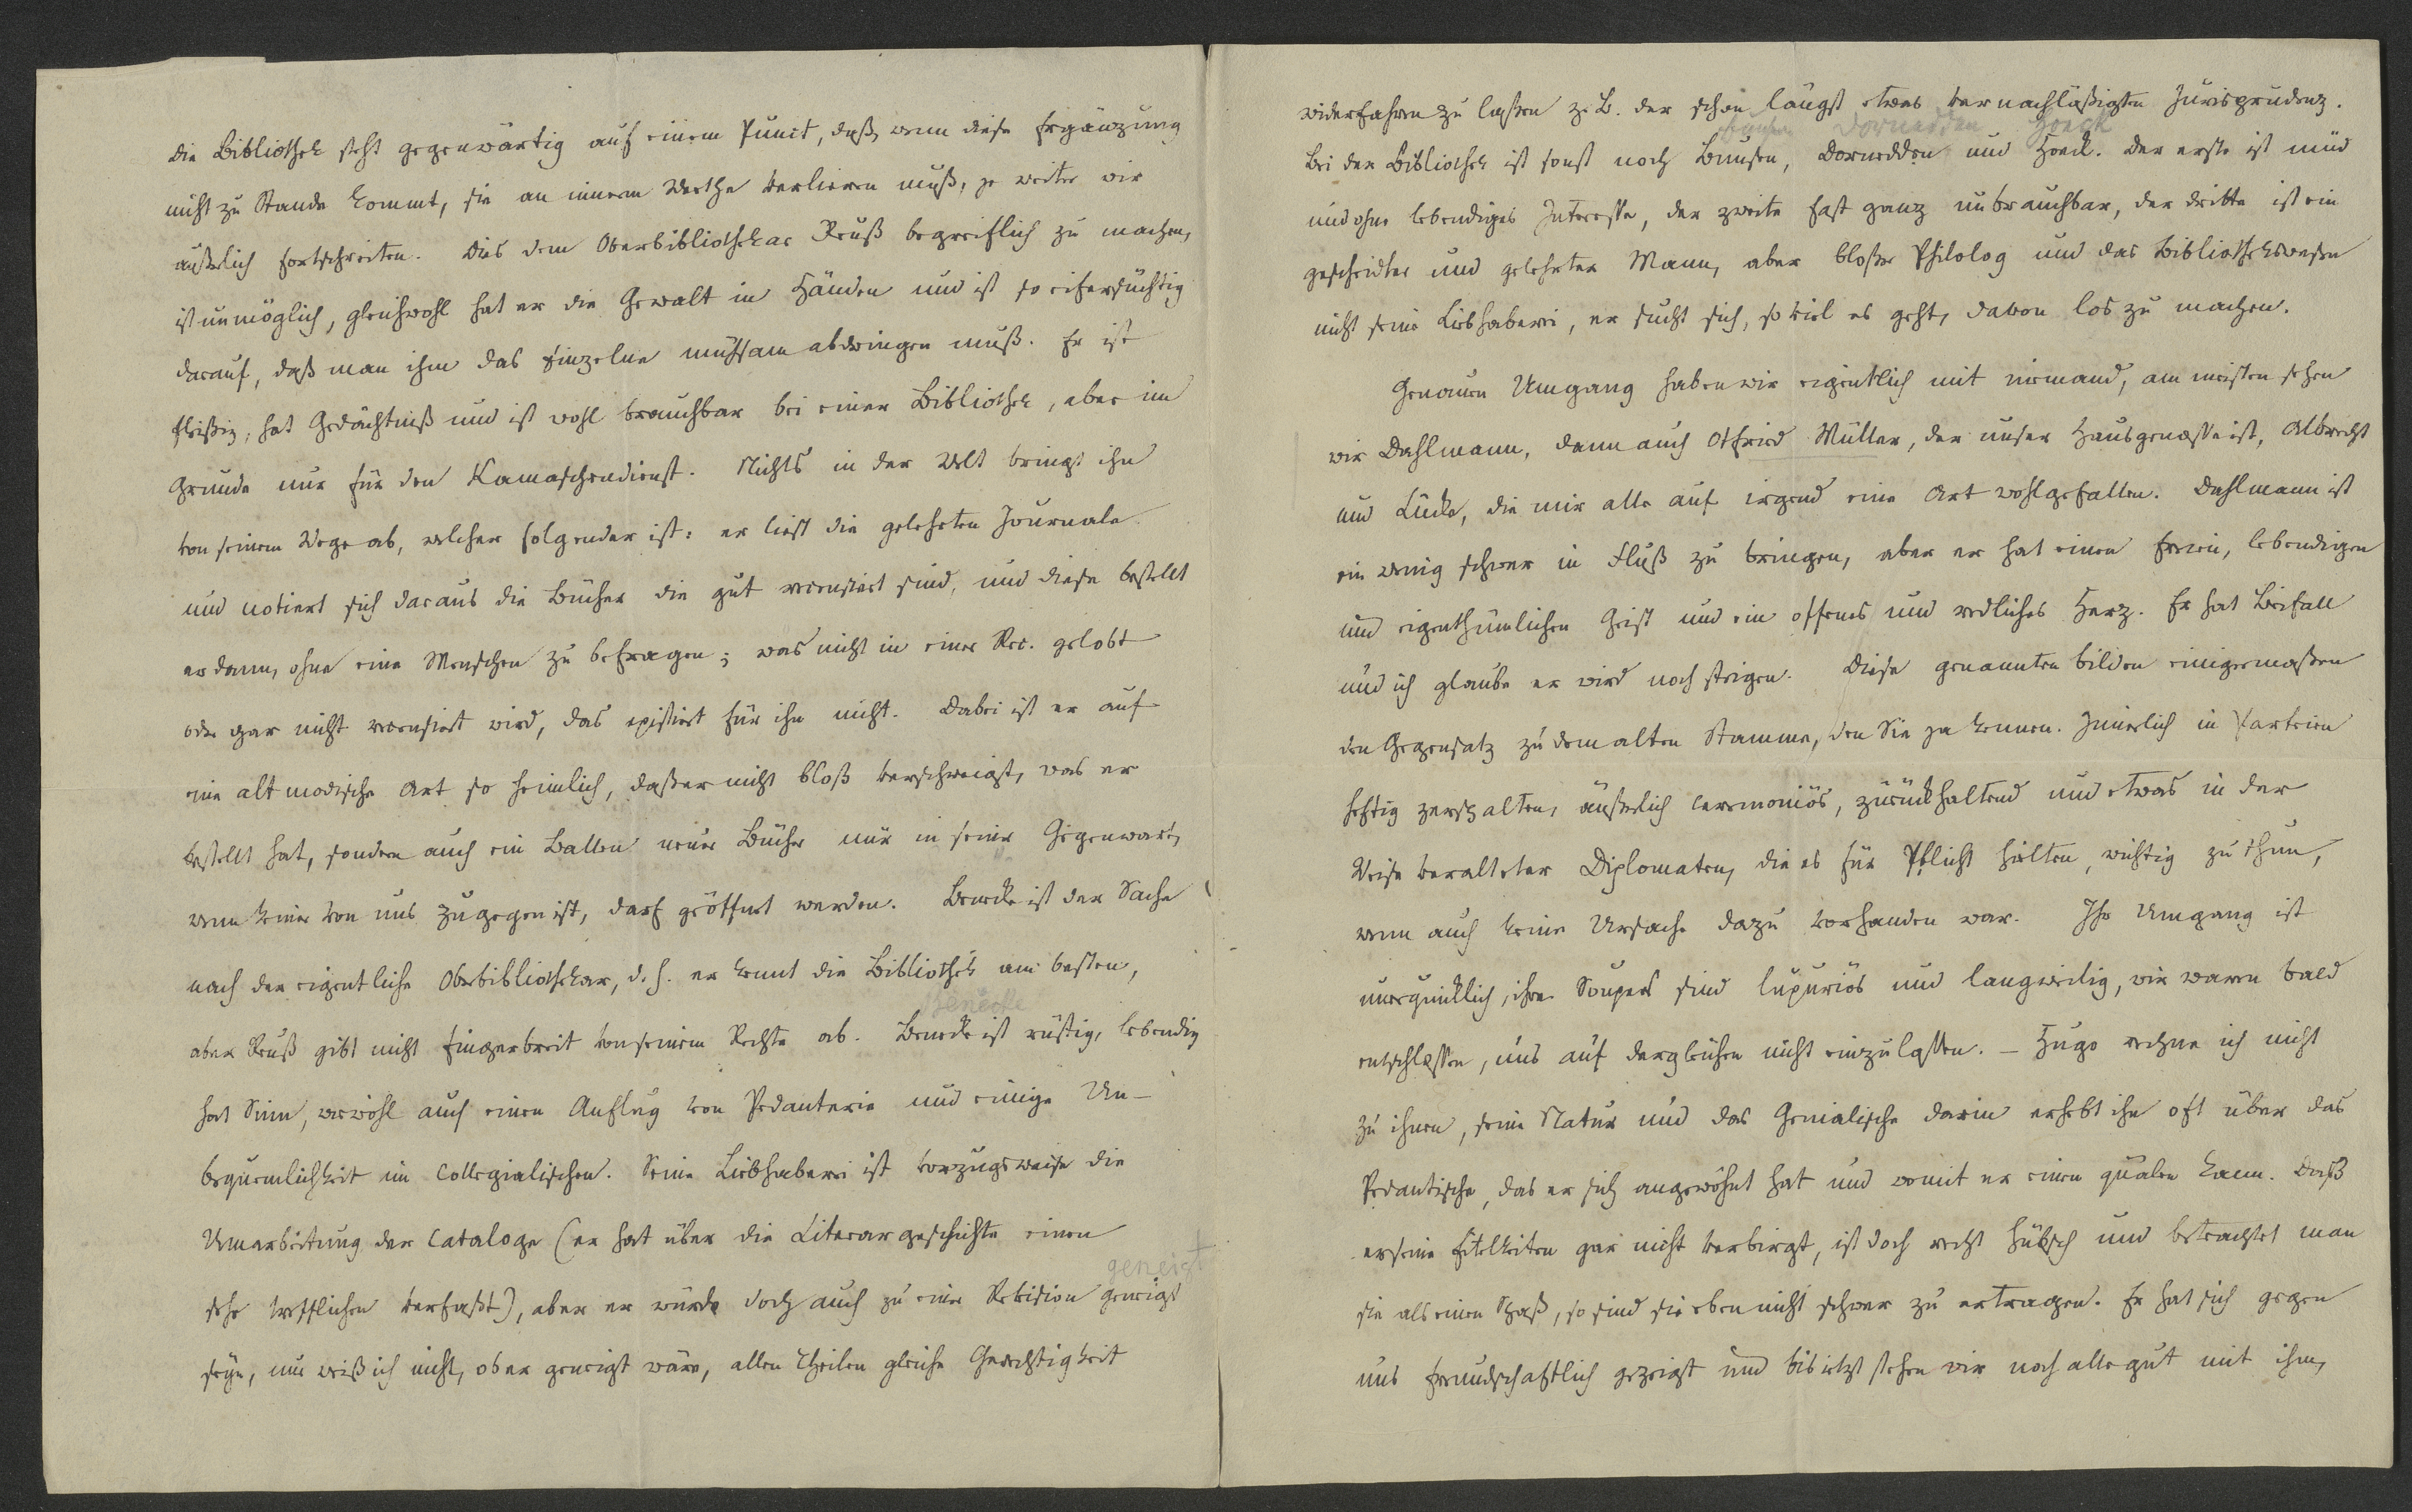 die Bibliothek steht gegenwärtig auf einem Punct, daß, wenn diese Ergänzung
nicht zu Stande kommt, sie an innerem Werthe verlieren muß, je weiter wir
äußerlich fortschreiten. Dies dem Oberbibliothekar Reuß begreiflich zu machen,
ist unmöglich, gleichwohl hat er die Gewalt in Händen und ist so eifersüchtig
darauf, daß man ihm das Einzelne mühsam abdringen muß. Er ist
fleißig, hat Gedächtniß und ist wohl brauchbar bei einer Bibliothek, aber im
Grunde nur für den Kamaschendienst. Nichts in der Welt bringt ihn
von seinem Wege ab, welcher folgender ist: er liest die gelehrten Journale
und notiert sich daraus die Bücher die gut recensiert sind, und diese bestellt
er dann, ohne eine Menschen zu befragen; was nicht in einer Rec. gelobt
oder gar nicht recensiert wird, das existiert für ihn nicht. Dabei ist er auf
eine altmodische Art so heimlich, daß er nicht bloß verschweigt, was er
bestellt hat, sondern auch ein Ballen neuer Bücher nur in seiner Gegenwart,
wenn keiner von uns zugegen ist, darf geöffnet werden. Benecke ist der Sache
nach der eigentliche Oberbibliothekar, d. h. er kennt die Bibliothek am besten,
Benecke
aber Reuß gibt nicht Fingerbreit von seinem Rechte ab. Benecke ist rüstig, lebendig
hat Sinn, wiewohl auch einen Anflug von Pedanterie und einige Un-
bequemlichkeit im Collegialischen. Seine Liebhaberei ist vorzugsweise die
Umarbeitung der Cataloge (er hat über die Literargeschichte einen
geneigt
sehr trefflichen verfaßt), aber er würde doch auch zu einer Revision geneigt
seyn, nur weiß ich nicht, ob er geneigt wäre, allen Theilen gleiche Gerechtigkeit
widerfahren zu laßen z. B. der schon längst etwas vernachläßigten Jurisprudenz.
Bunsen Dornedden Hoeck
Bei der Bibliothek ist sonst noch Bunsen, Dornedden und Hoeck. Der erste ist müd
und ohne lebendiges Interesse, der zweite fast ganz unbrauchbar, der dritte ist ein
gescheidter und gelehrter Mann, aber bloßer Philolog und das Bibliothekswesen
nicht seine Liebhaberei, er sucht sich, so viel es geht, davon los zu machen.
Genauen Umgang haben wir eigentlich mit niemand, am meisten sehen
wir Dahlmann, dann auch Otfried Müller, der unser Hausgenosse ist, Albrecht
und Lücke, die mir alle auf irgend eine Art wohlgefallen. Dahlmann ist
ein wenig schwer in Fluß zu bringen, aber er hat einen freien, lebendigen
und eigenthümlichen Geist und ein offenes und redliches Herz. Er hat Beifall
und ich glaube er wird noch steigen. Diese genannten bilden einigermaßen
den Gegensatz zu dem alten Stamme, den Sie ja kennen. Innerlich in Parteien
heftig zerspalten, äußerlich ceremoniös, zurückhaltend und etwas in der
Weise veralteter Diplomaten, die es für Pflicht hielten, wichtig zu thun,
wenn auch keine Ursache dazu vorhanden war. Ihr Umgang ist
unerquicklich, ihre Soupers sind luxuriös und langweilig, wir waren bald
entschlossen, uns auf dergleichen nicht einzulassen. – Hugo rechne ich nicht
zu ihnen, seine Natur und das Genialische darin erhebt ihn oft über das
Pedantische, das er sich angewöhnt hat und womit er einen quälen kann. Daß
er seine Eitelkeiten gar nicht verbirgt, ist doch recht hübsch und betrachtet man
sie als einen Spaß, so sind sie eben nicht schwer zu ertragen. Er hat sich gegen
uns freundschaftlich gezeigt und bis ietzt stehen wir noch alle gut mit ihm,